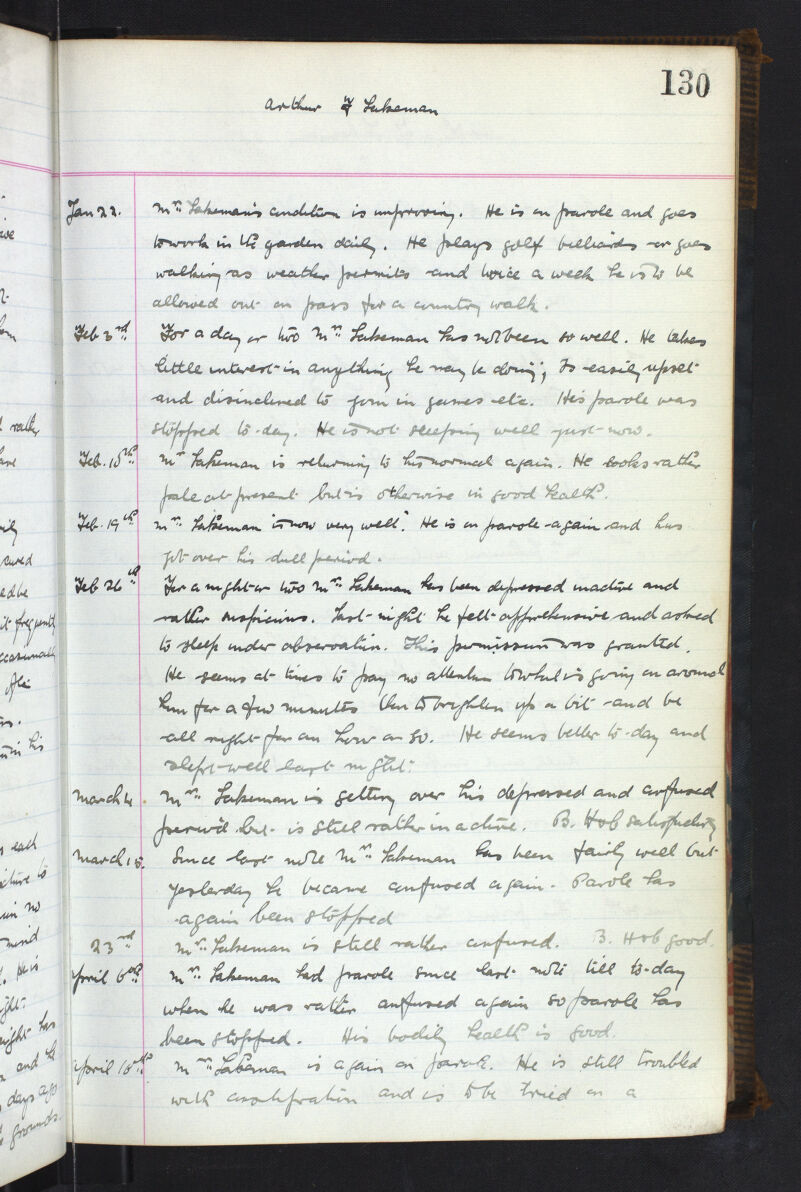 130
Arthur F Lakeman
Jan 22. Mr. Lakeman's condition is improving. He is on parole and goes
to work in the garden daily. He plays golf billiards or goes
walking as weather permits and twice a week he is to be
allowed out on pass for a country walk.
Feb 3rd For a day or two Mr. Lakeman has not been so well. He takes
little interest in anything he may be doing, is easily upset
and disinclined to join in games etc. His parole was
stopped to-day. He is not sleeping well just now.
Feb. 10th Mr Lakeman is returning to his normal again. He looks rather
pale at present but is otherwise in good health.
Feb. 19th Mr. Lakeman is now very well. He is on parole again and has
got over his dull period.
Feb 26th For a night or two Mr. Lakeman has been depressed inactive and
rather suspicious. Last night he felt apprehensive and asked
to sleep under observation. This permission was granted.
He seems at times to pay no attention to what is going on around
him for a few minutes then to brighten up a bit and be
all right for an hour or so. He seems better to-day and
slept well last night.
March 4. Mr. Lakeman is getting over his depressed and confused
period but is still rather inactive. B. Hlb satisfactory
March 15. Since last note Mr. Lakeman has been fairly well but
yesterday he became confused again. Parole has
again been stopped
23rd Mr. Lakeman is still rather confused. B. Hlb good.
April 6th Mr. Lakeman had parole since last note till to-day
when he was rather confused again so parole has
been stopped. His bodily health is good.
April 10th Mr. Lakeman is again on parole. He is still troubled
with constipation and is to be tried on a